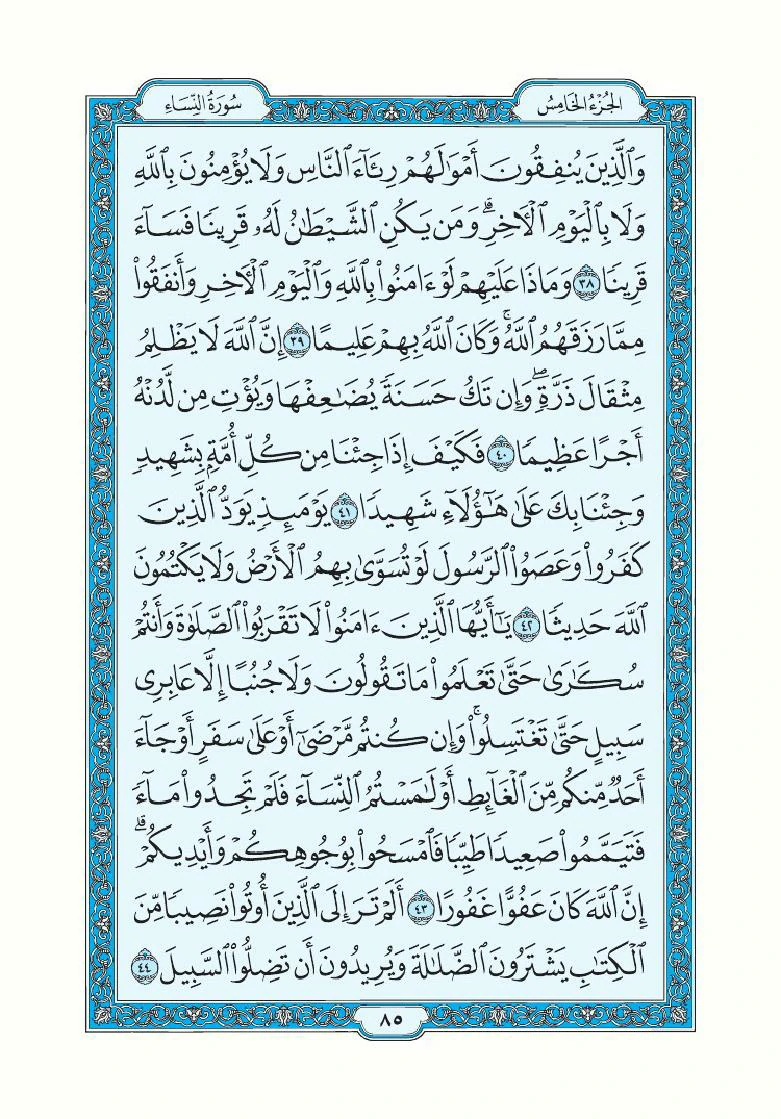 الجُزْءُ الخَامِسُ
سُورَةُ النِّسَاءِ
وَٱلَّذِينَ يُنفِقُونَ أَمْوَٰلَهُمْ رِئَآءَ ٱلنَّاسِ وَلَا يُؤْمِنُونَ بِٱللَّهِ
وَلَا بِٱلْيَوْمِ ٱلْـَٔاخِرِۗ وَمَن يَكُنِ ٱلشَّيْطَٰنُ لَهُۥ قَرِينًا فَسَآءَ
قَرِينًا ٣٨ وَمَاذَا عَلَيْهِمْ لَوْ ءَامَنُوا۟ بِٱللَّهِ وَٱلْيَوْمِ ٱلْـَٔاخِرِ وَأَنفَقُوا۟
مِمَّا رَزَقَهُمُ ٱللَّهُۚ وَكَانَ ٱللَّهُ بِهِمْ عَلِيمًا ٣٩ إِنَّ ٱللَّهَ لَا يَظْلِمُ
مِثْقَالَ ذَرَّةٍۖ وَإِن تَكُ حَسَنَةً يُضَٰعِفْهَا وَيُؤْتِ مِن لَّدُنْهُ
أَجْرًا عَظِيمًا ٤٠ فَكَيْفَ إِذَا جِئْنَا مِن كُلِّ أُمَّةٍۭ بِشَهِيدٍ
وَجِئْنَا بِكَ عَلَىٰ هَٰٓؤُلَآءِ شَهِيدًا ٤١ يَوْمَئِذٍ يَوَدُّ ٱلَّذِينَ
كَفَرُوا۟ وَعَصَوُا۟ ٱلرَّسُولَ لَوْ تُسَوَّىٰ بِهِمُ ٱلْأَرْضُ وَلَا يَكْتُمُونَ
ٱللَّهَ حَدِيثًا ٤٢ يَٰٓأَيُّهَا ٱلَّذِينَ ءَامَنُوا۟ لَا تَقْرَبُوا۟ ٱلصَّلَوٰةَ وَأَنتُمْ
سُكَٰرَىٰ حَتَّىٰ تَعْلَمُوا۟ مَا تَقُولُونَ وَلَا جُنُبًا إِلَّا عَابِرِى
سَبِيلٍ حَتَّىٰ تَغْتَسِلُوا۟ۚ وَإِن كُنتُم مَّرْضَىٰٓ أَوْ عَلَىٰ سَفَرٍ أَوْ جَآءَ
أَحَدٌ مِّنكُم مِّنَ ٱلْغَآئِطِ أَوْ لَٰمَسْتُمُ ٱلنِّسَآءَ فَلَمْ تَجِدُوا۟ مَآءً
فَتَيَمَّمُوا۟ صَعِيدًا طَيِّبًا فَٱمْسَحُوا۟ بِوُجُوهِكُمْ وَأَيْدِيكُمْۗ
إِنَّ ٱللَّهَ كَانَ عَفُوًّا غَفُورًا ٤٣ أَلَمْ تَرَ إِلَى ٱلَّذِينَ أُوتُوا۟ نَصِيبًا مِّنَ
ٱلْكِتَٰبِ يَشْتَرُونَ ٱلضَّلَٰلَةَ وَيُرِيدُونَ أَن تَضِلُّوا۟ ٱلسَّبِيلَ ٤٤
٨٥